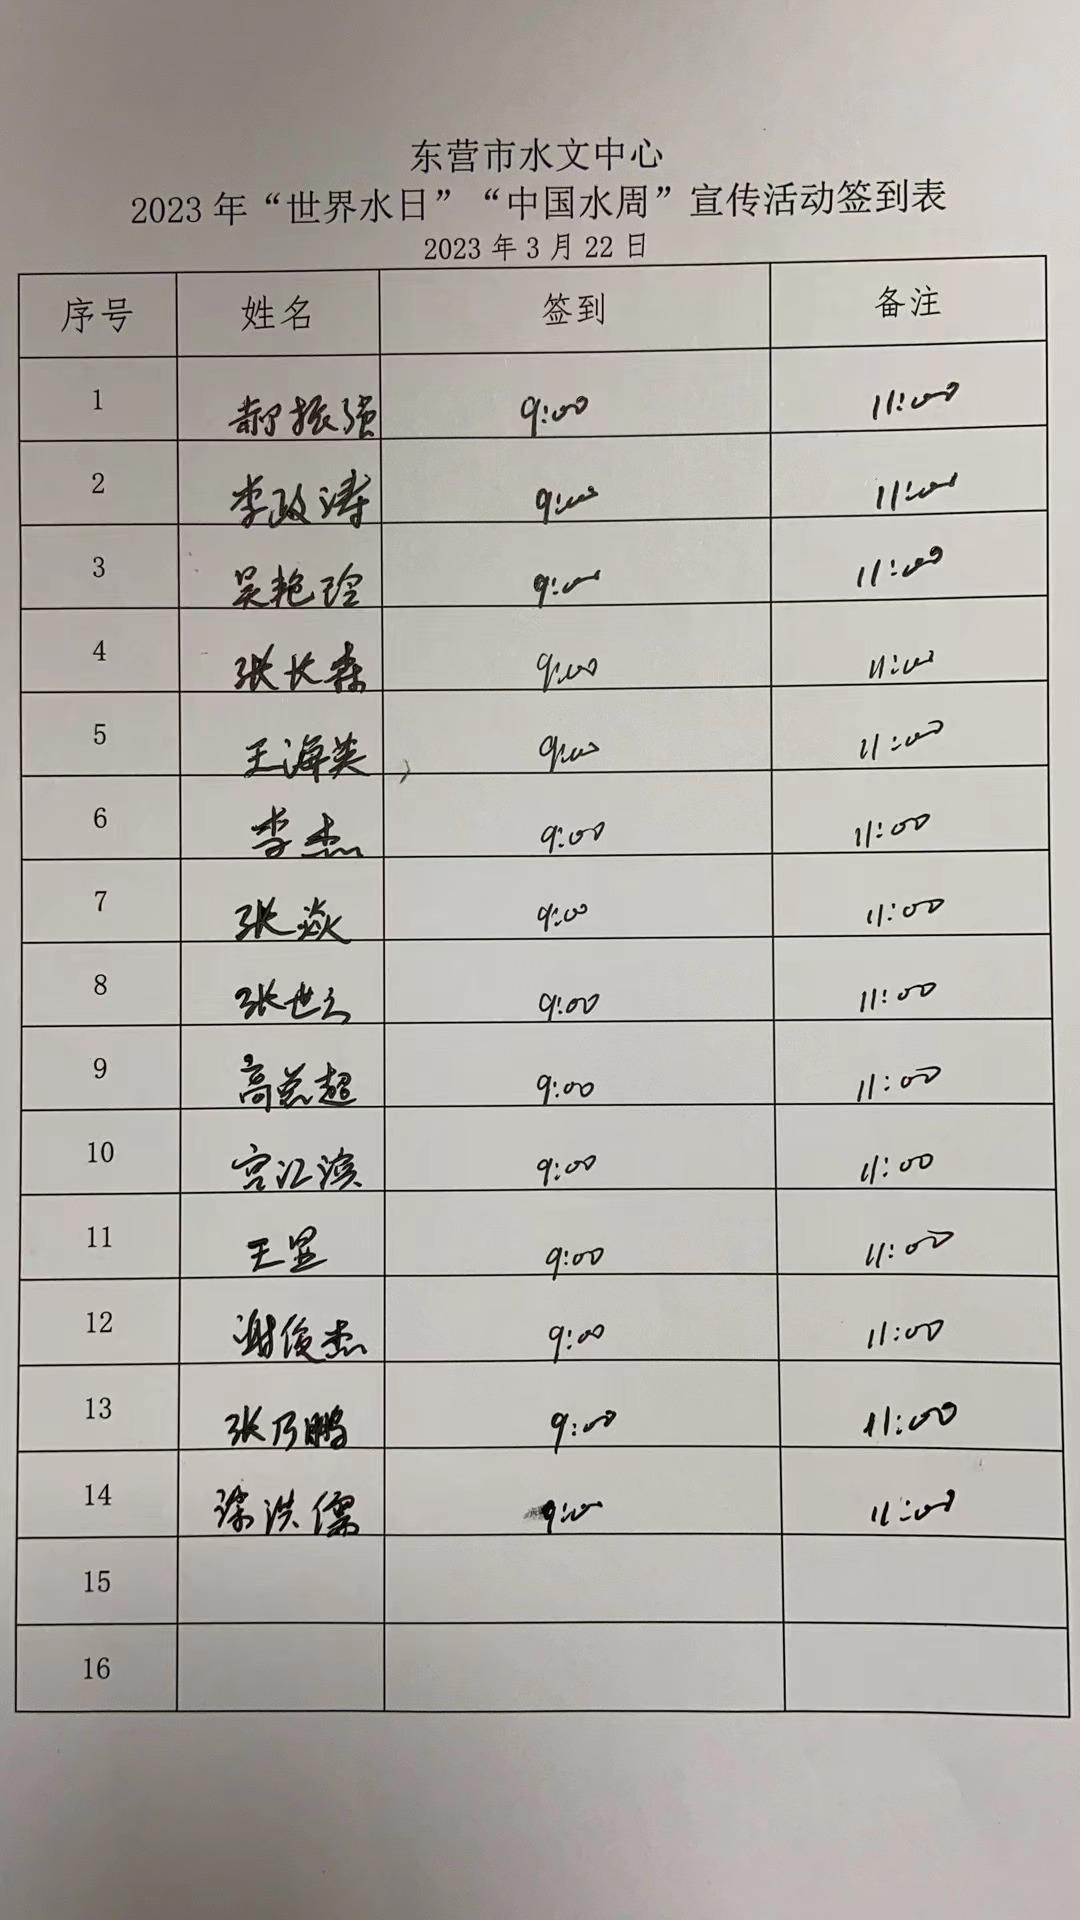 东营市水文中心
2023 年“世界水日”“中国水周”宣传活动签到表
2023 年 3 月 22 日
序号 姓名 签到 备注
1 郝振强 9:00 11:00
2 李政涛 9:00 11:00
3 吴艳玲 9:00 11:00
4 张长森 9:00 11:00
5 王海英 9:00 11:00
6 李杰 9:00 11:00
7 张焱 9:00 11:00
8 张世云 9:00 11:00
9 高 超 9:00 11:00
10 宫江滨 9:00 11:00
11 王昱 9:00 11:00
12 谢俊杰 9:00 11:00
13 张乃鹏 9:00 11:00
14 洪儒 9:00 11:00
15
16